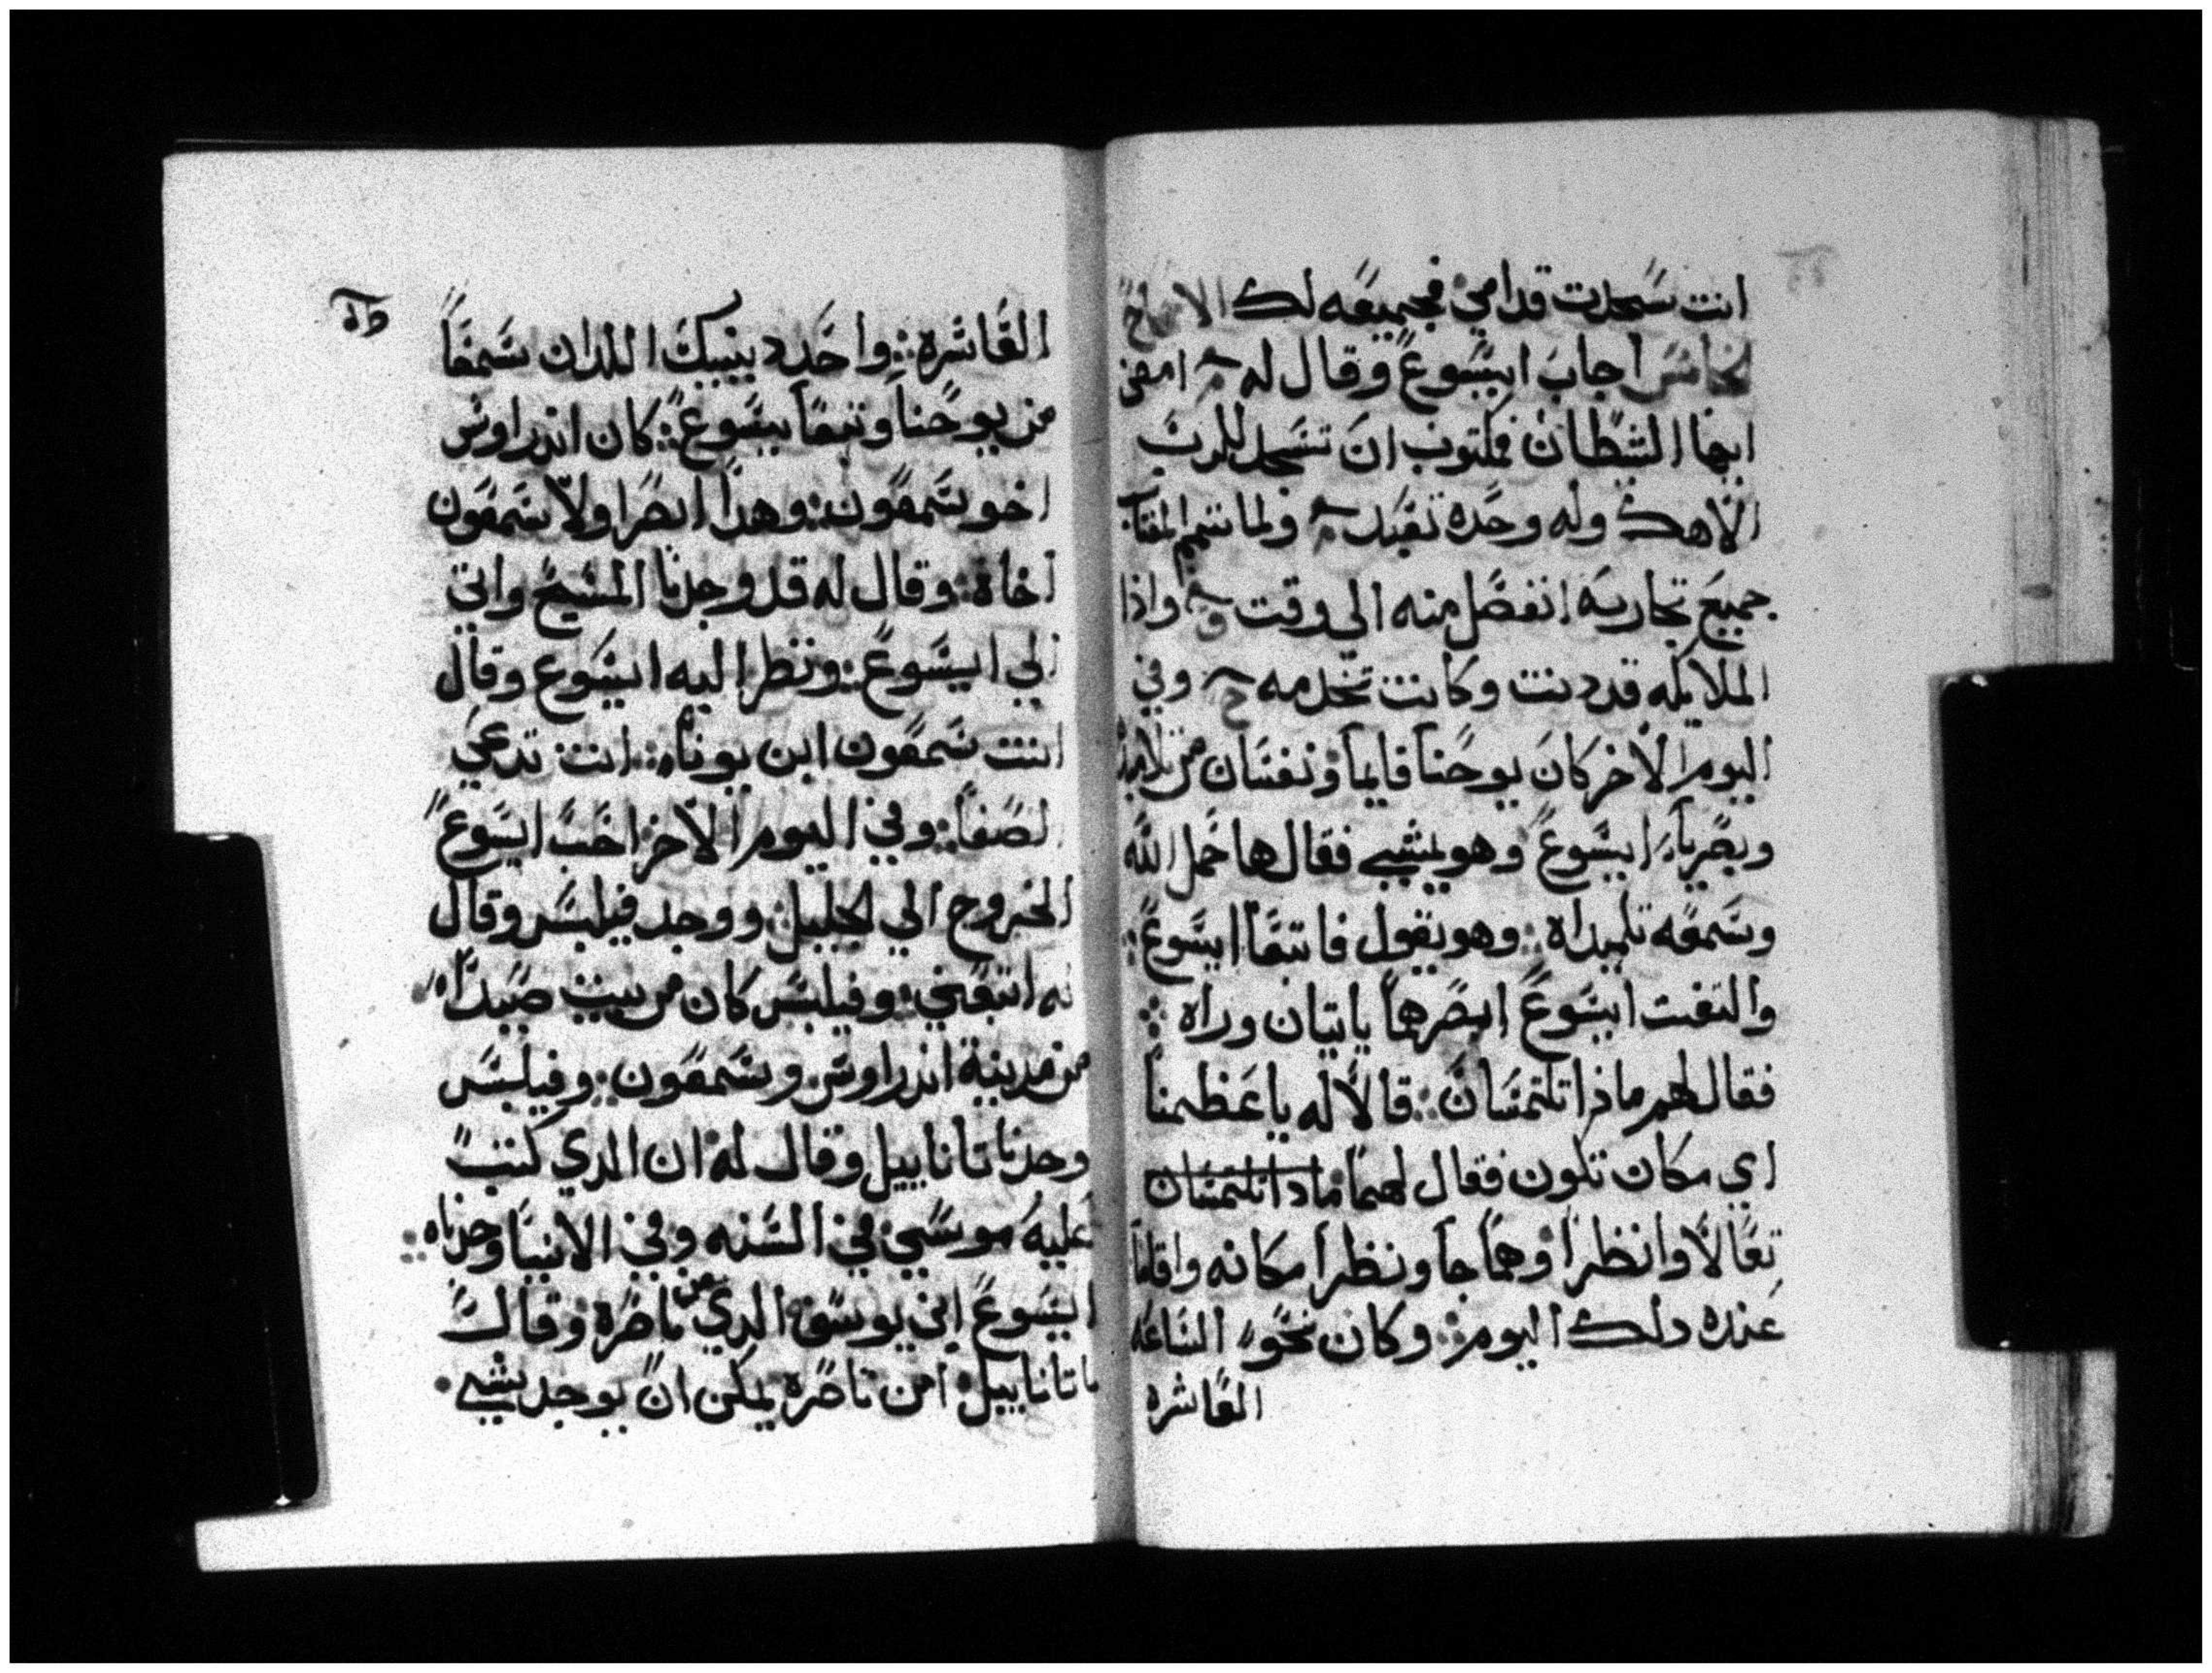 انت سجدت قدامي فجميعه لك الاصحاح
الخامس اجاب ايسوع وقال له امضي
ايها الشطان فمكتوب ان تسجد للرب
الاهك وله وحده تعبد ولما تمم
جميع تجاربه انفصل منه الي وقت واذا
الملايكه قد دنت وكانت تخدمه وفي
اليوم الاخر كان يوحنا قايما ونفسان من تلاميذ
وبصربا ايسوع وهو يمشي فقال ها حمل الله
وسمعه تلميداه وهو يقول فاتبعا ايسوع
والتفت ايسوع ابصرهما ياتيان وراه
فقال لهم ماذا تلتمسان قالا له يا عظيمنا
اي مكان تكون فقال لهما مادا تلتمسان
تعالا وانظرا وهما جا ونظرا مكانه واقاما
عنده دلك اليوم وكان نحو الساعه
العاشره
العاشره واحد دينيك اللدان سمعا
من يوحنا وتبعا يسوع كان اندراوس
اخو سمعون وهدا ابصر اولا سمعون
اخاه وقال له قد وجدنا المسيح واتي
الي ايسوع ونظر اليه ايسوع وقال
انت سمعون ابن يونا انت تدعي
لصفا وفي اليوم الاخر احب ايسوع
الخروج الي الجليل ووجد فيلبس وقال
له اتبعني وفيلبس كان من بيت صيدا
من مدينة اندراوس وسمعون وفيلبس
وجد ناتاناييل وقال له ان الدي كتب
عليه موسي في السنه وفي الانبيا وجدناه
ايسوع ابن يوسف الدي من ناصره وقال
ناتاناييل امن ناصره يمكن ان يوجد شي